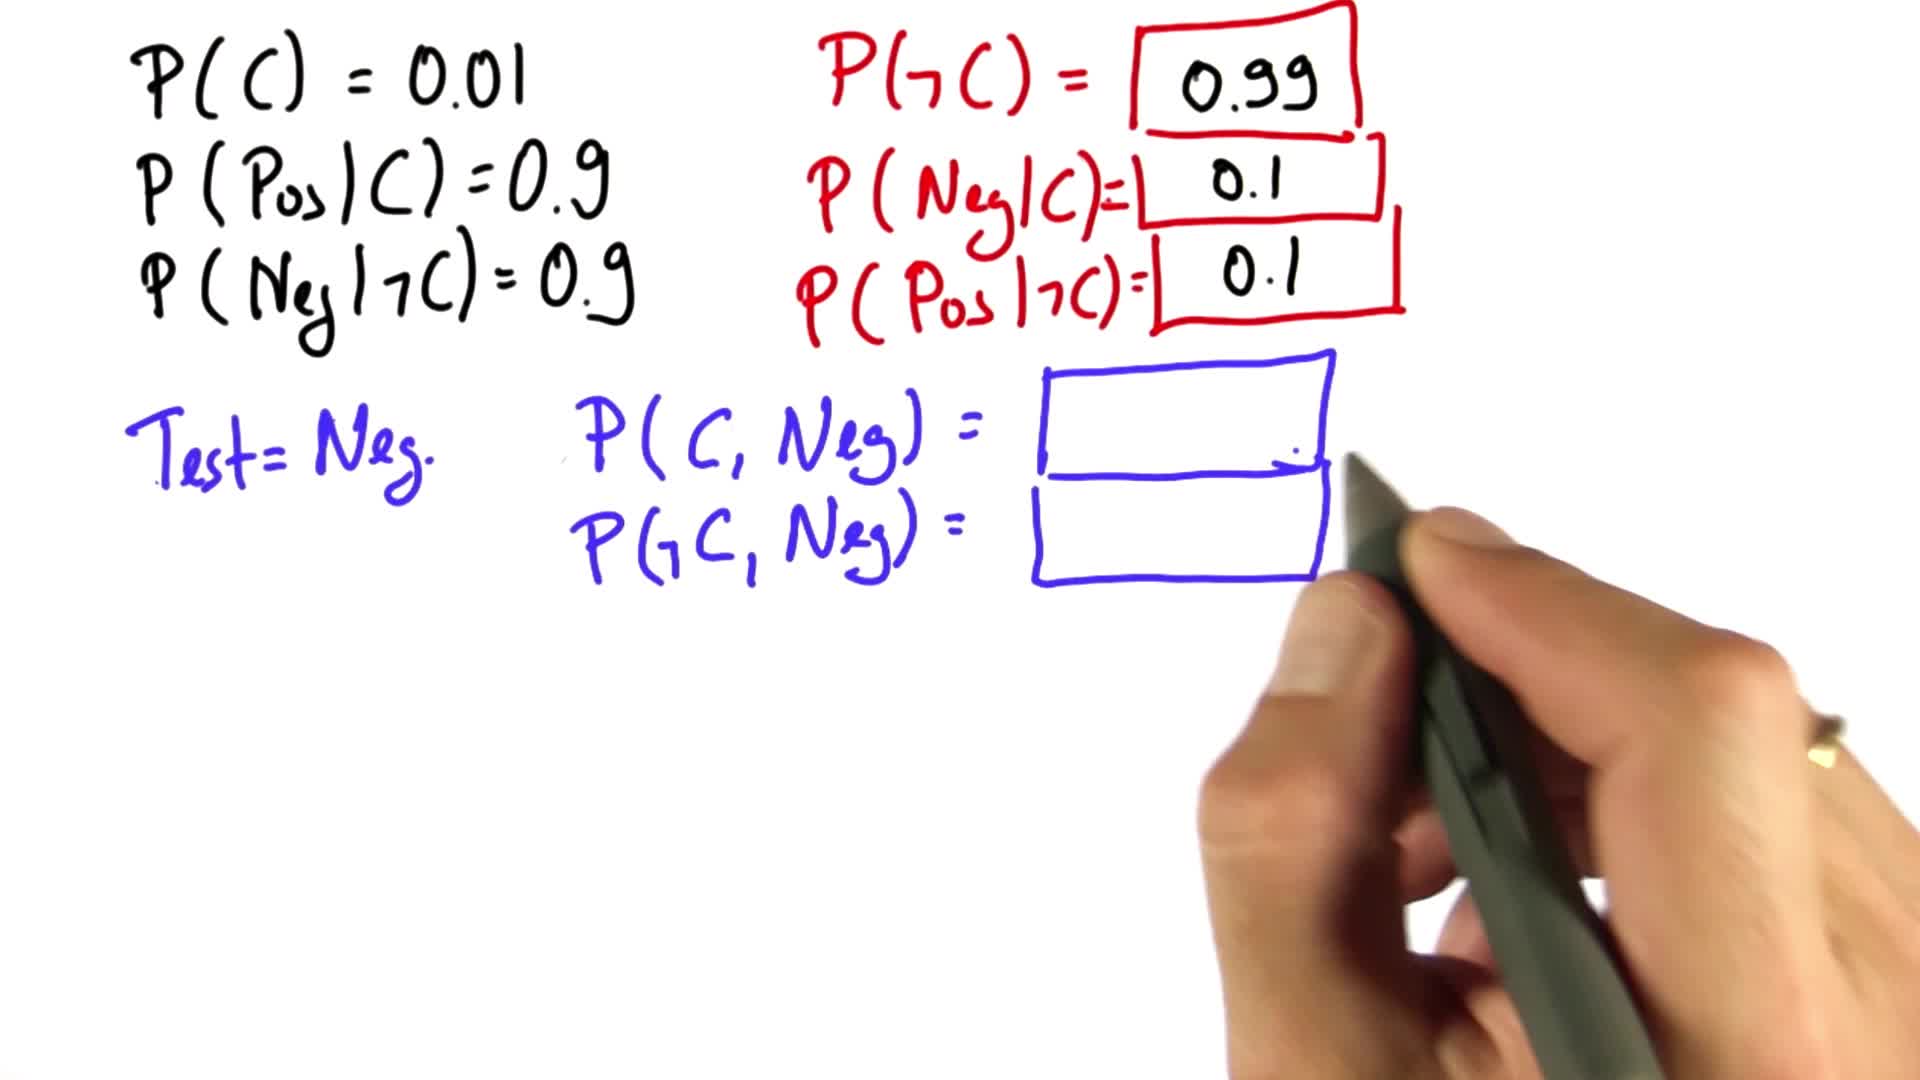 P(C) = 0.01
P(Pos|C) = 0.9
P(Neg|¬C) = 0.9
P(¬C) = 0.99
P(Neg|C) = 0.1
P(Pos|¬C) = 0.1
Test = Neg.
P(C, Neg) =
P(¬C, Neg) =